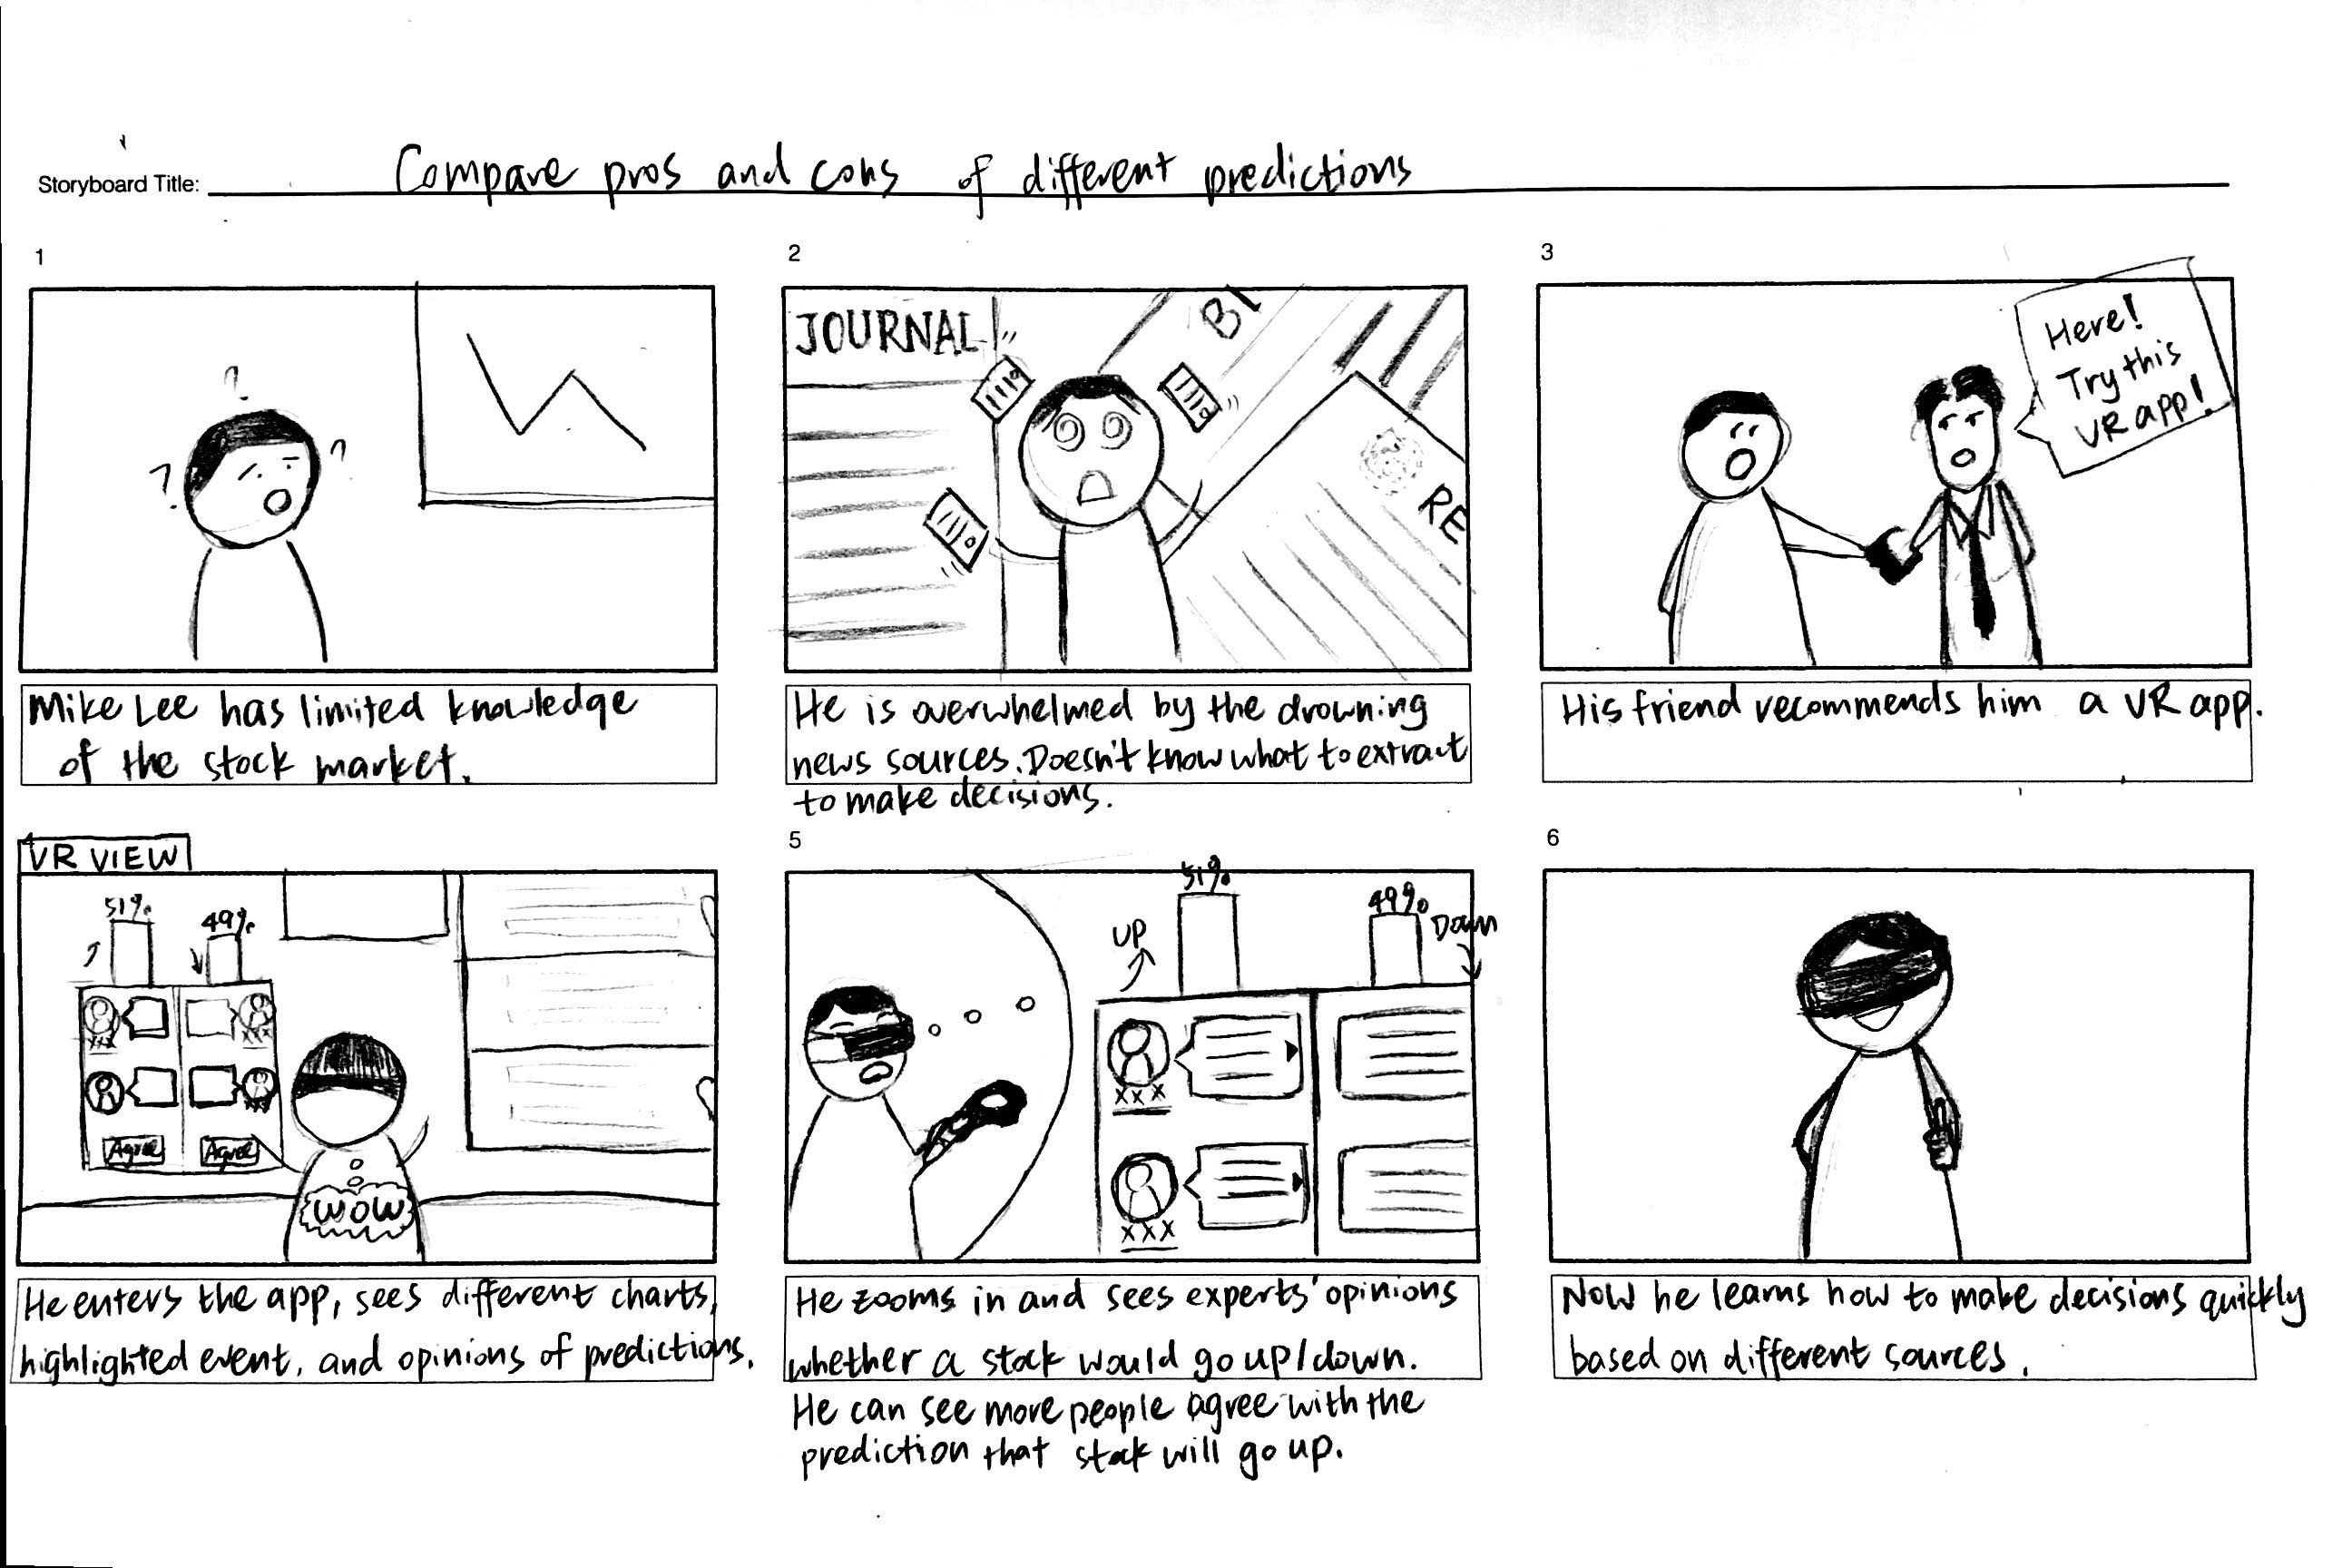 Storyboard Title: Compare pros and cons of different predictions
1
2
3
? ? ?
JOURNAL
BI
RE
Here!
Try this
VR app!
Mike Lee has limited knowledge
of the stock market.
He is overwhelmed by the drowning
news sources. Doesn't know what to extract
to make decisions.
His friend recommends him a VR app.
4
VR VIEW
51%
49%
xxx
xxx
xxx
Agree
Agree
WOW
5
51%
49%
UP
Down
xxx
xxx
6
He enters the app, sees different charts,
highlighted event, and opinions of predictions.
He zooms in and sees experts' opinions
whether a stock would go up/down.
He can see more people agree with the
prediction that stock will go up.
Now he learns how to make decisions quickly
based on different sources.